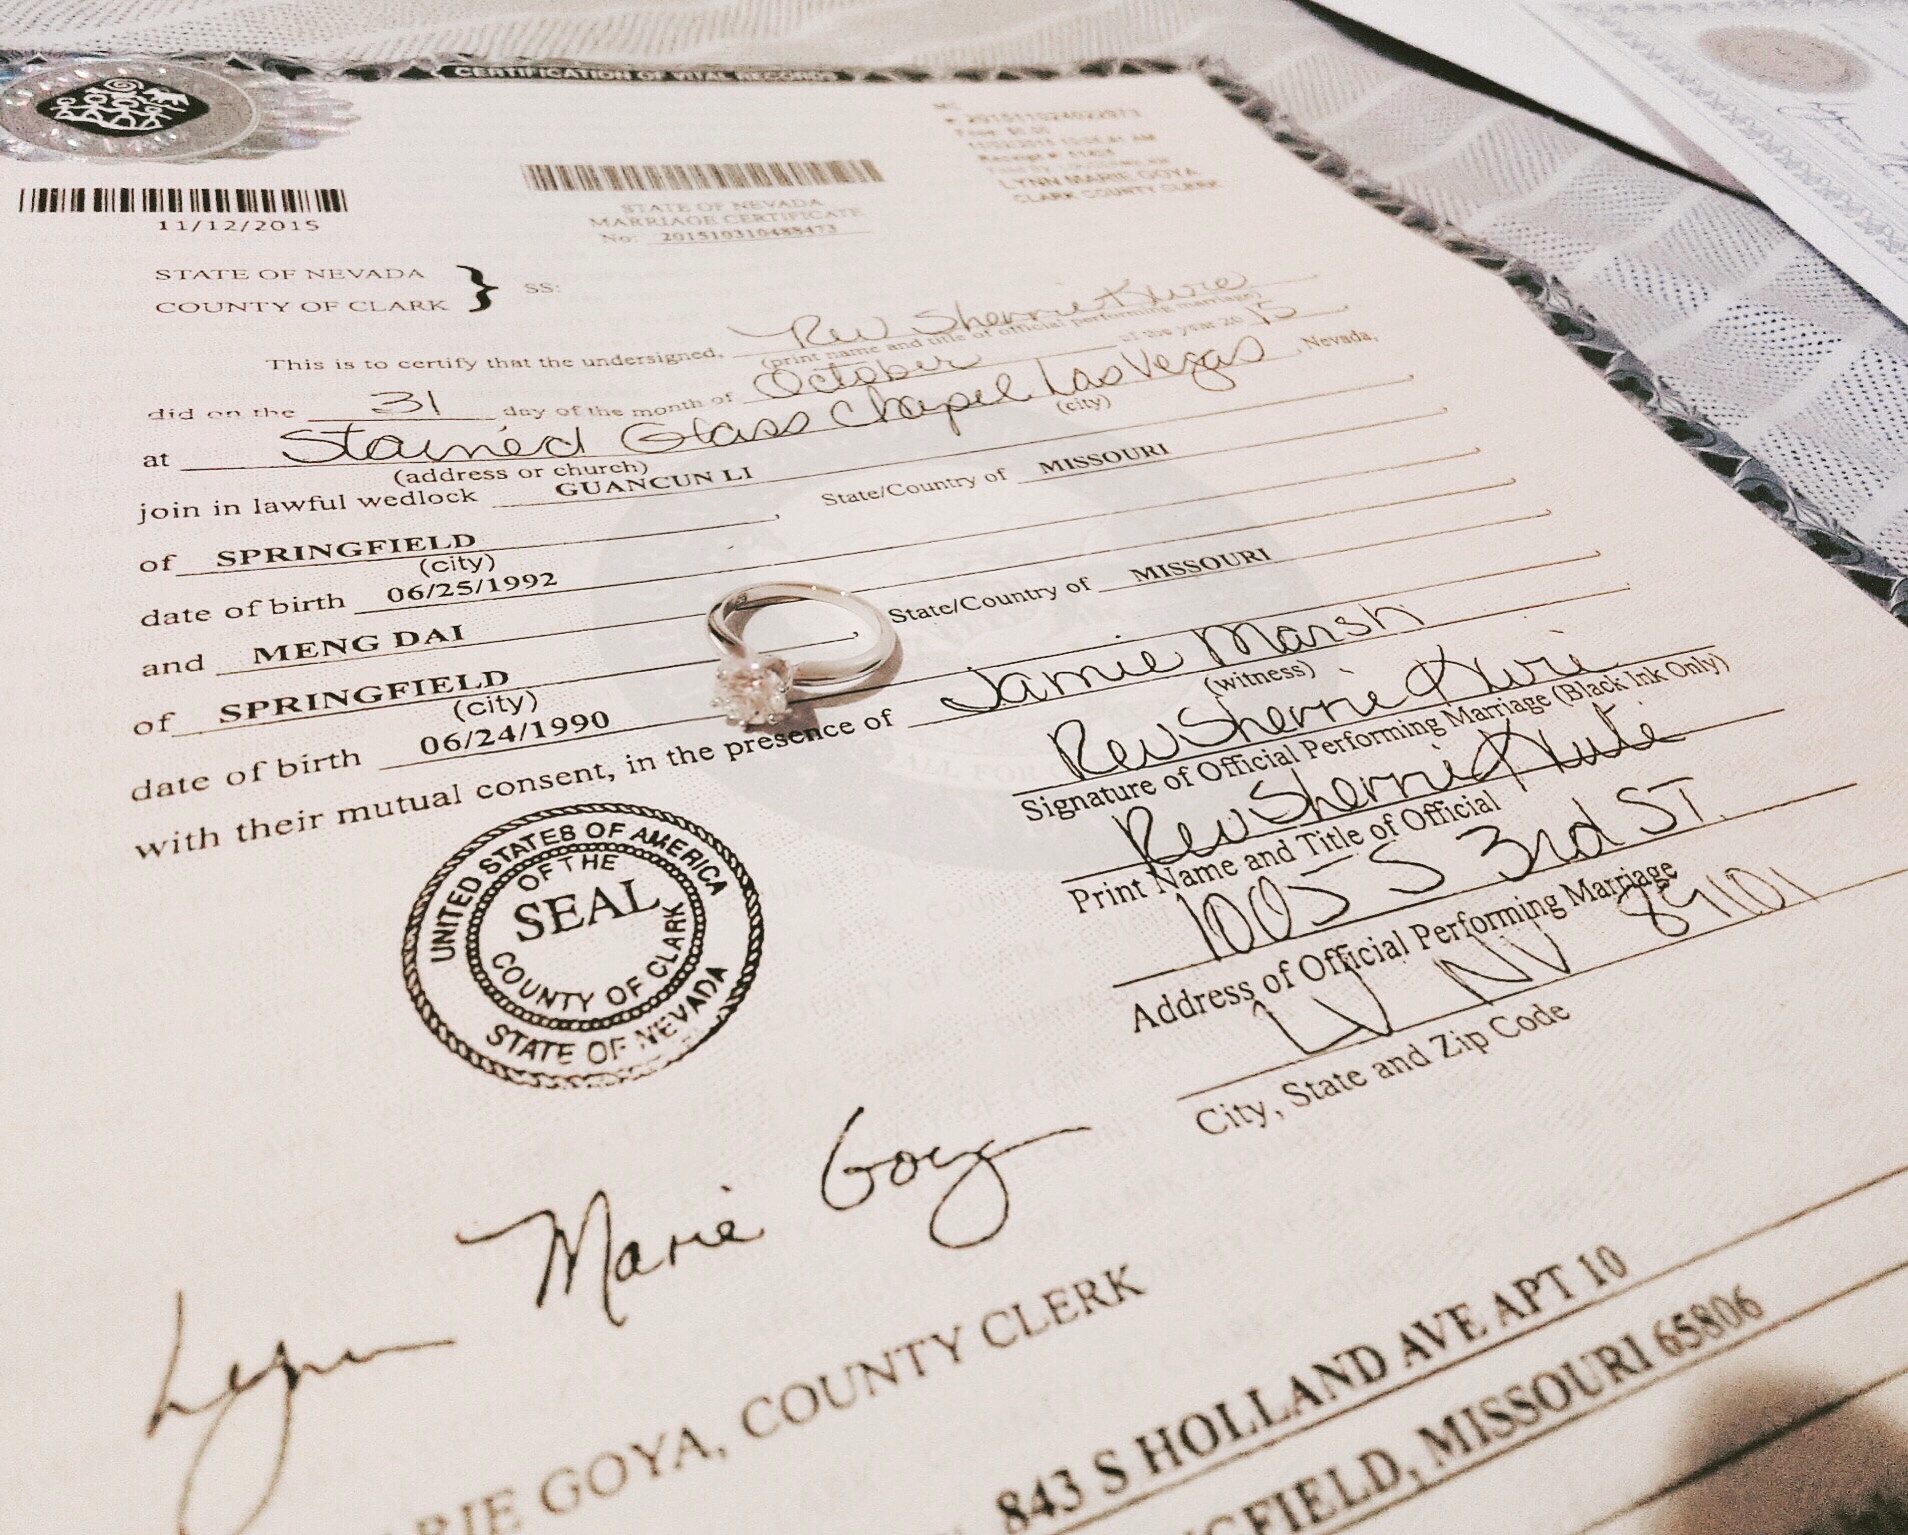 CERTIFICATION OF VITAL RECORDS
11/12/2015
STATE OF NEVADA
MARRIAGE CERTIFICATE
No: 201510310488473
LYNN MARIE GOYA
CLARK COUNTY CLERK
STATE OF NEVADA
COUNTY OF CLARK } SS:
This is to certify that the undersigned, Rev Sherrie
(print name and title of official performing marriage)
did on the 31 day of the month of October of the year 2015
at Stained Glass Chapel Las Vegas, Nevada,
(address or church) (city)
join in lawful wedlock GUANCUN LI
of SPRINGFIELD State/Country of MISSOURI
(city)
date of birth 06/25/1992
and MENG DAI
of SPRINGFIELD State/Country of MISSOURI
(city)
date of birth 06/24/1990
with their mutual consent, in the presence of Jamie Marsh
(witness)
Rev Sherrie
Signature of Official Performing Marriage (Black Ink Only)
Rev Sherrie
Print Name and Title of Official
1005 S 3rd ST.
Address of Official Performing Marriage
LV NV 89101
City, State and Zip Code
UNITED STATES OF AMERICA
OF THE
SEAL
COUNTY OF CLARK
STATE OF NEVADA
Lynn Marie Goya
RIE GOYA, COUNTY CLERK
843 S HOLLAND AVE APT 10
GFIELD, MISSOURI 65806